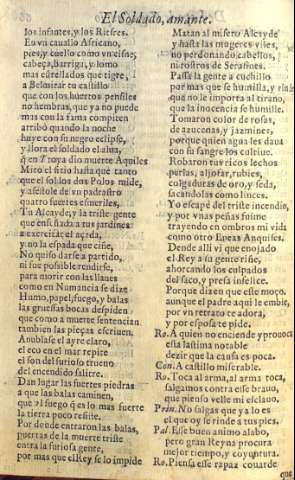 El Soldado, amante.
los Infantes, y los Riesces.
En vn cauallo Africano,
pies, y cuello como vn cisne,
cabeça, barriga, y lomo
mas estrellados que tigre,
a Belmitar tu castillo
que con los huertos pensiles
no hembras, que ya no puede
mas con la fama compiten
arribò quando la noche
huye con su negro eclipse,
y llora el soldado el alua,
q̃ en Troya dio muerte Aquiles
Miro el sitio hasta quẽ tanto
que el sol los dos Polos mide,
y asestole de su padrastro
quatro fuertes esmeriles,
Tu Alcayde, y la triste gente
que enseñada a tus jardines
a exercitar el açada,
y no la espada que ciñe,
No quiso darse a partido,
ni fue posible rendirse,
para morir con las llaues
como en Numancia se dize
Humo, papel, fuego, y balas
las gruessas bocas despiden
que como a muerte sentencian
tambien las pieças escriuen.
Anublase el ayre claro,
el eco en el mar repite
el son del furioso trueno
del encendido salitre.
Dan lugar las fuertes piedras
a que las balas caminen,
que al fuego q̃ es lo mas fuerte
la tierra poco resiste.
Por donde entraron las balas,
puertas de la muerte triste
entra la furiosa gente,
por mas que el Rey se lo impide
Matan al misero Alcayde
y hasta las mugeres viles,
no perdonando cabellos,
ni rostros de Serafines.
Passa la gente a cuchillo
por mas que se humilla, y
que no le importa al tirano,
que la inocencia se humille.
Tomaron color de rosas,
de azucenas, y jazmines,
porque quien agua les daua
con su sangre los cultiue.
Robaron tus ricos lechos
perlas, aljofar, rubies,
colgaduras de oro, y seda,
sacandolas como linces.
Yo escapè del triste incendio,
y por vnas peñas fuime
trayendo en ombros mi vida
como otro Eneas Anquises.
Dende alli vi que enojado
el Rey a su gente riñe,
ahorcando los culpados
del saco, y presa infelice.
Porque dizen que esse moço,
aunque el padre aqui le embie,
por vn retrato te adora,
y por esposa te pide.
Ro. A quien no enciende y prouoca
esta lastima notable
dezir que la causa es poca.
Con. A castillo miserable.
Ro. Toca al arma, al arma toca,
salgamos contra esse brauo,
que pienso velle mi esclauo.
Prin. No salgas que ya lo es
el que oy se rinde a tus pies.
Pal. Esse buen animo alabo,
pero gran Reyna procura
mejor tiempo, y coyuntura.
Ro. Piensa esse rapaz couarde
que